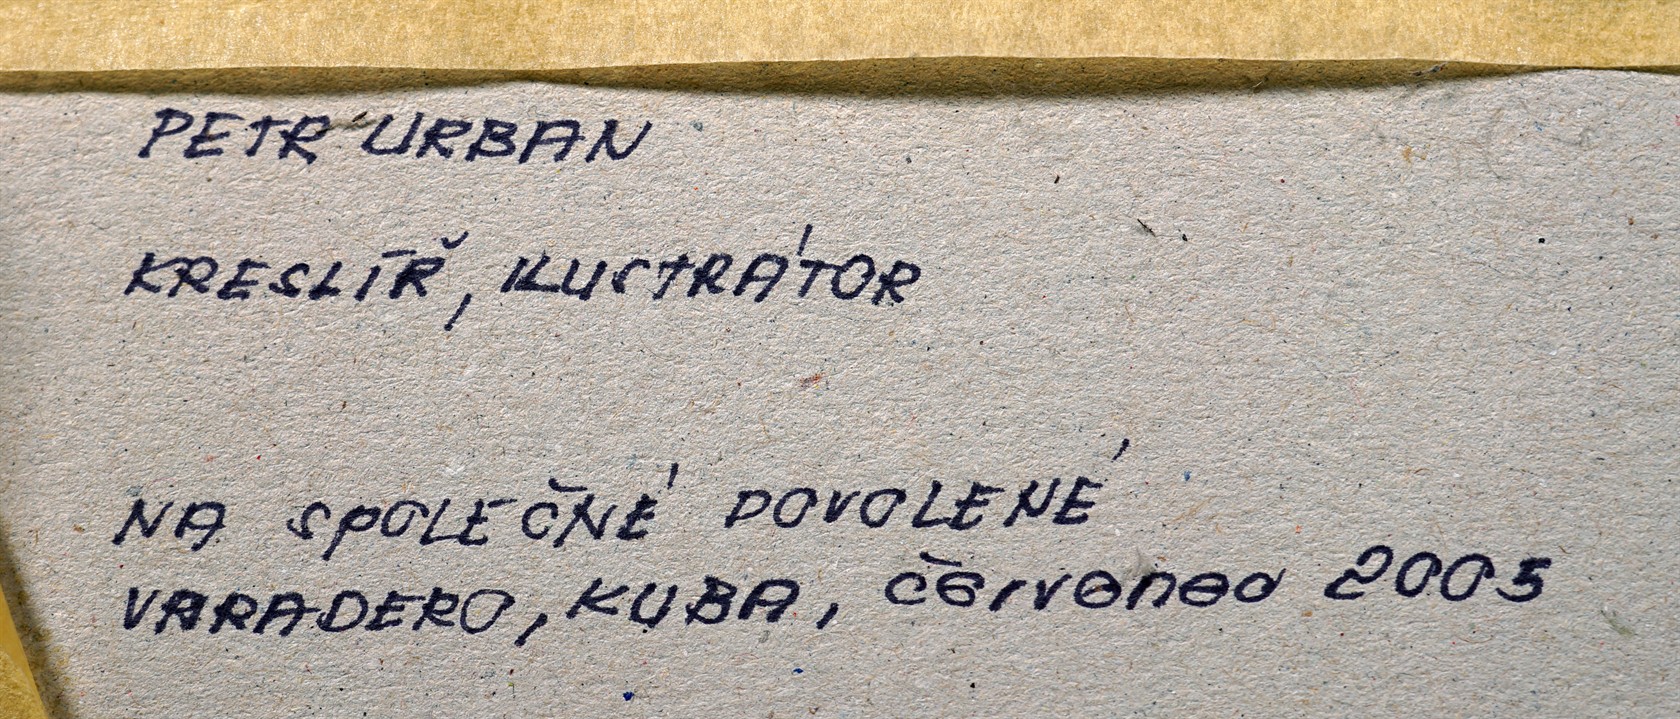 PETR URBAN
KRESLÍŘ, ILUSTRÁTOR
NA SPOLEČNÉ DOVOLENÉ
VARADERO, KUBA, červenec 2005